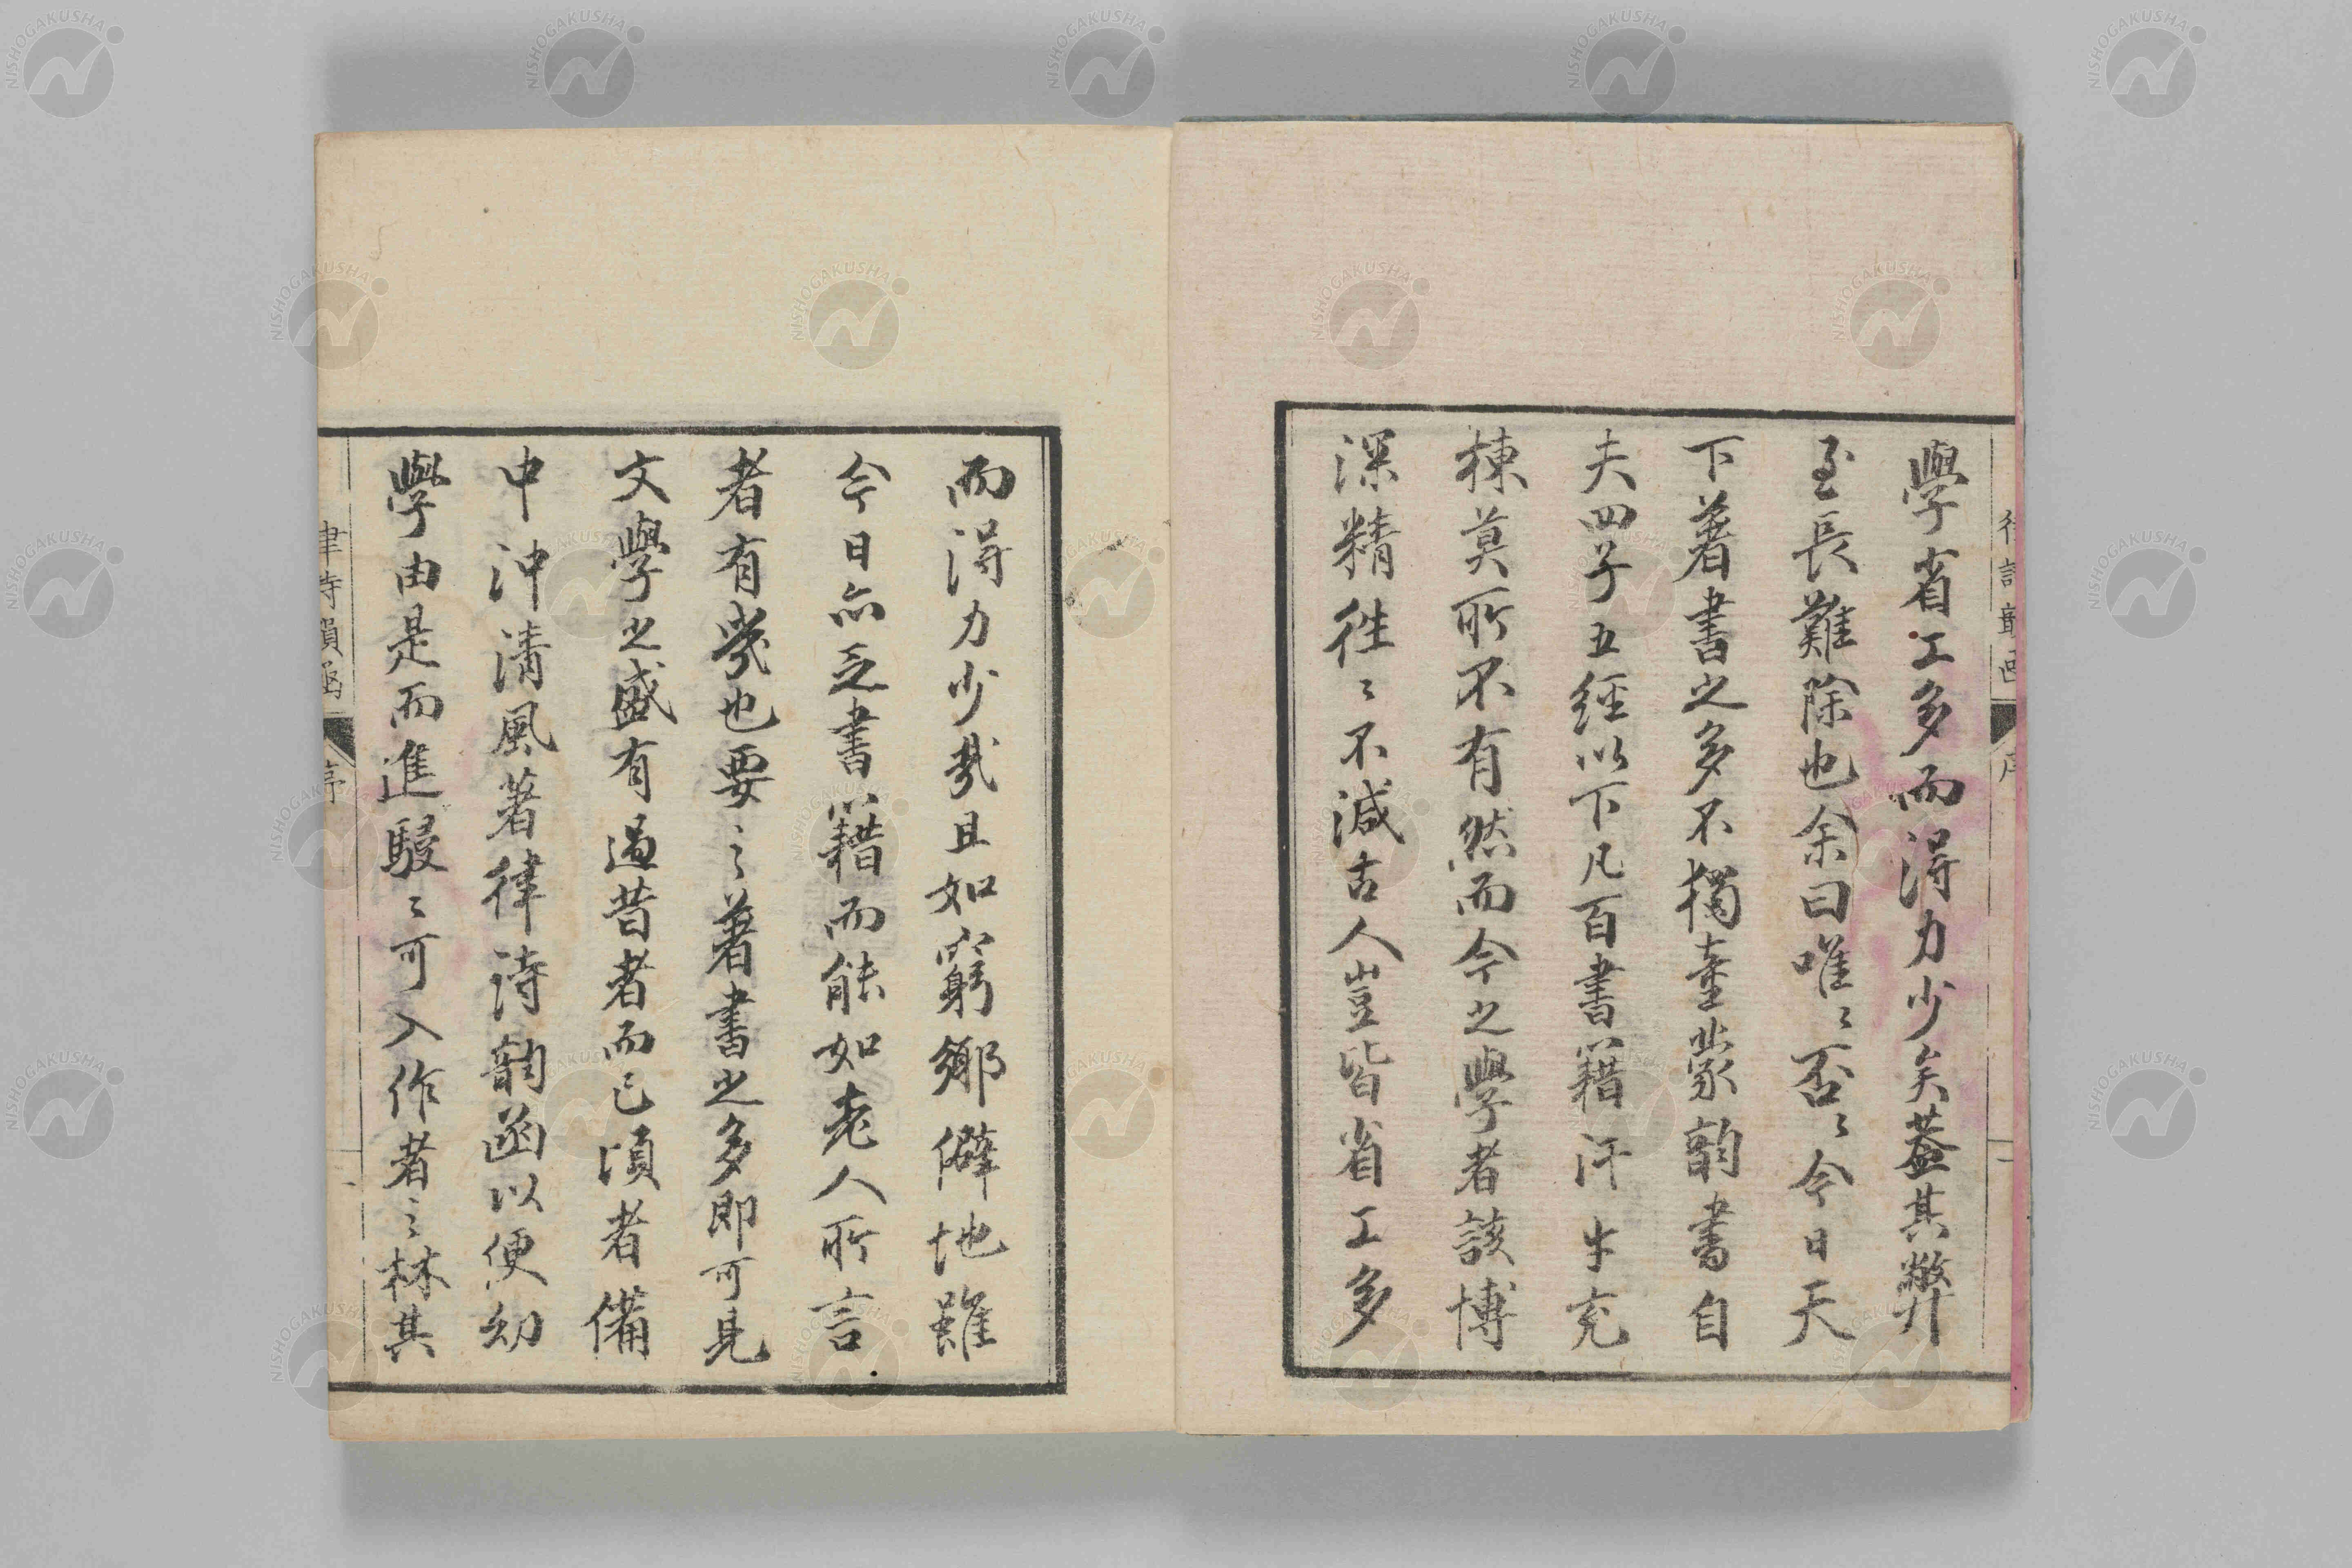 學省工多而得力少矣蓋其弊
至長難除也余曰唯〻否〻今日天
下著書之多不獨童蒙韵書自
夫四子五經以下凡百書籍汗牛充
棟莫所不有然而今之學者該博
深精往〻不減古人豈皆省工多
而得力少哉且如窮鄉僻地雖
今日亦乏書籍而能如老人所言
者有幾也要之著書之多即可見
文學之盛有過昔者而已頃者備
中沖清風著律詩韵函以便幼
學由是而進駸〻可入作者之林其
律詩韻函
序
NISHOGAKUSHA